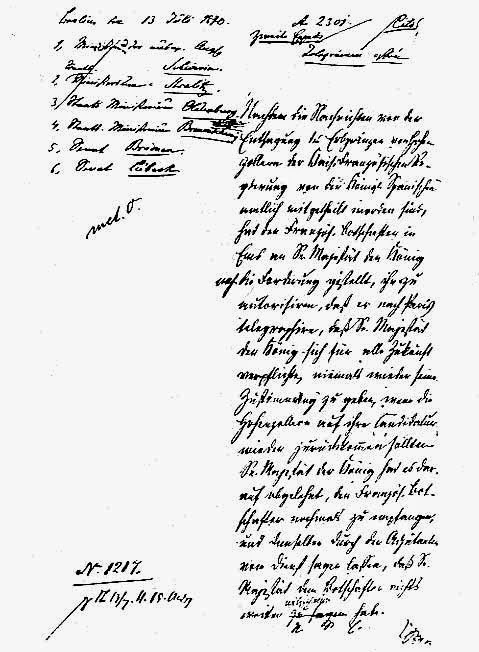 Berlin den 13 Juli 1870.
A 2301
Cito!
1, Ministerium der
Schwerin.
2, Ministerium - Strelitz
3, Staats Ministerium Oldenburg
4, Staats Ministerium Braunschweig
5, Senat Bremen
6, Senat Lübeck
Nachdem die Nachrichten von der
Entsagung des Erbprinzen von Hohen
zollern der Kais. Französischen Re
gierung von der Königl. Spanischen
amtlich mitgetheilt worden sind,
hat der Französ. Botschafter in
Ems an Se. Majestät den König
noch die Forderung gestellt, ihn zu
autorisiren, daß er nach Paris
telegraphire, daß Se. Majestät
der König sich für alle Zukunft
verpflichte, niemals wieder seine
Zustimmung zu geben, wenn die
Hohenzollern auf ihre Candidatur
wieder zurückkommen sollten
Se. Majestät der König hat es dar
auf abgelehnt, den Französ. Bot
schafter nochmals zu empfangen,
und demselben durch den Adjutanten
vom Dienst sagen lassen, daß Se.
Majestät dem Botschafter nichts
weiter mitzutheilen habe.
No 1217.